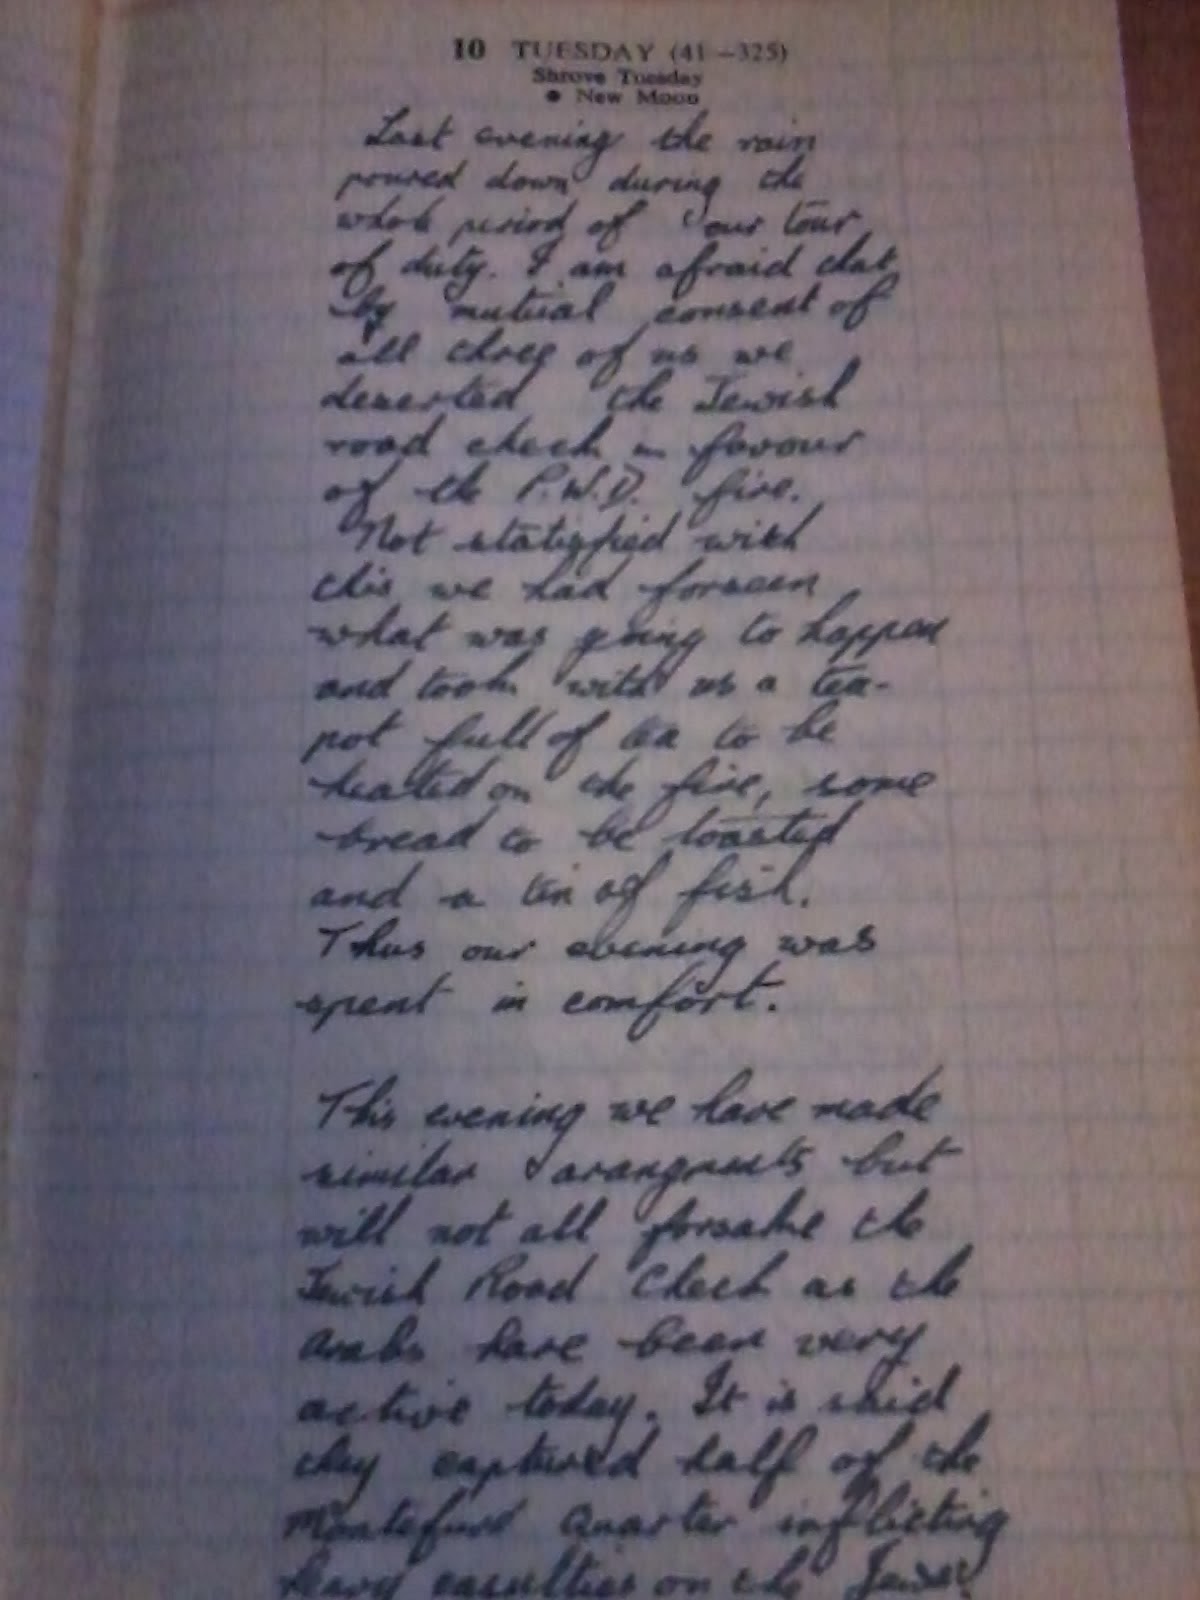 10 TUESDAY (41-325)
Shrove Tuesday
● New Moon
Last evening the rain
poured down during the
whole period of our tour
of duty. I am afraid that
by mutual consent of
all three of us we
deserted the Jewish
road check in favour
of the P.W.D. fire.
Not statisfied with
this we had forseen
what was going to happen
and took with us a tea-
pot full of tea to be
heated on the fire, some
bread to be toasted
and a tin of fish.
Thus our evening was
spent in comfort.
This evening we have made
similar arangments but
will not all forsake the
Jewish Road Check as the
Arabs have been very
active today. It is said
they captured half of the
Montefiore Quarter inflicting
heavy casulties on the Jews.